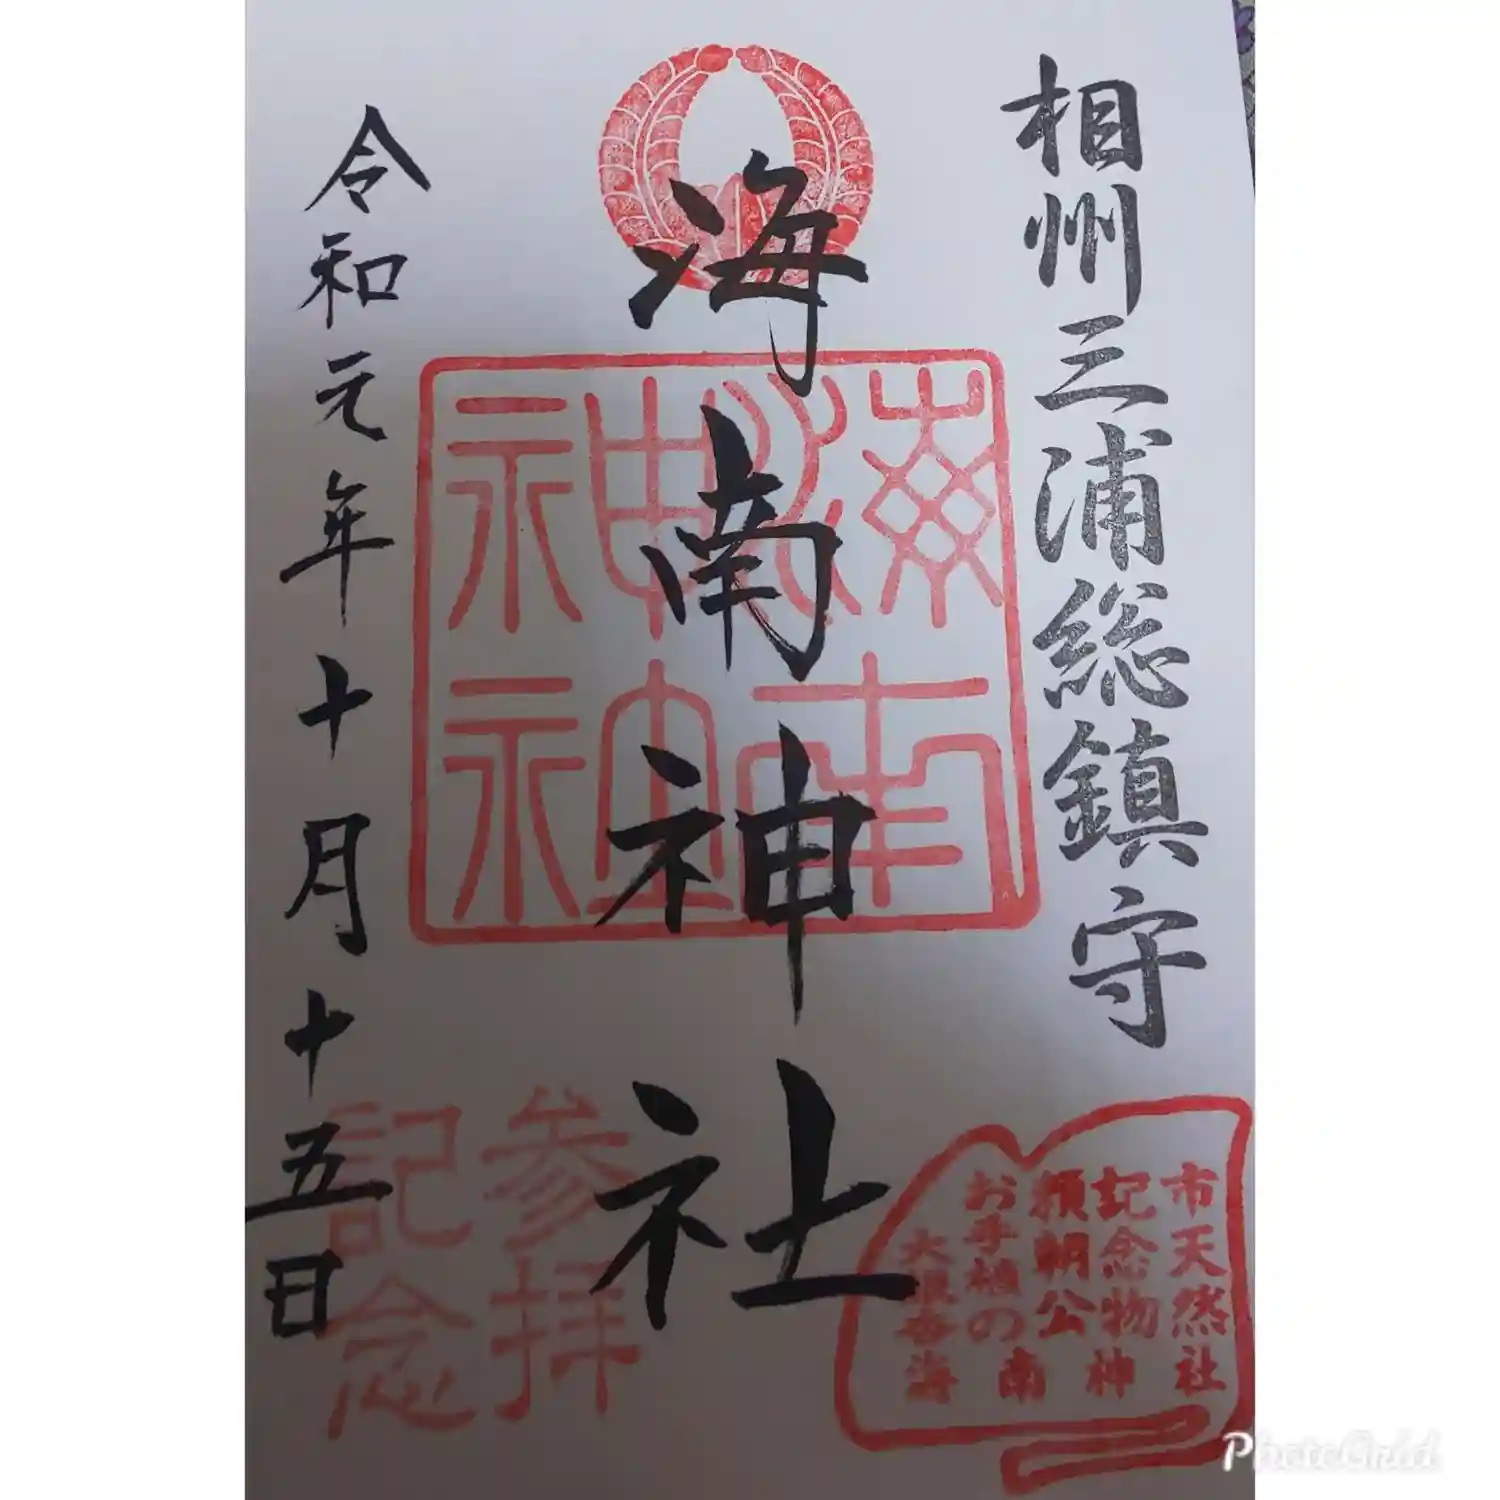 相州三浦総鎮守
海南神社
海南
神社
令和元年十月十五日
参拝
記念
市天然
記念物
頼朝公
お手植の
大銀杏
海南神社
PhotoGrid